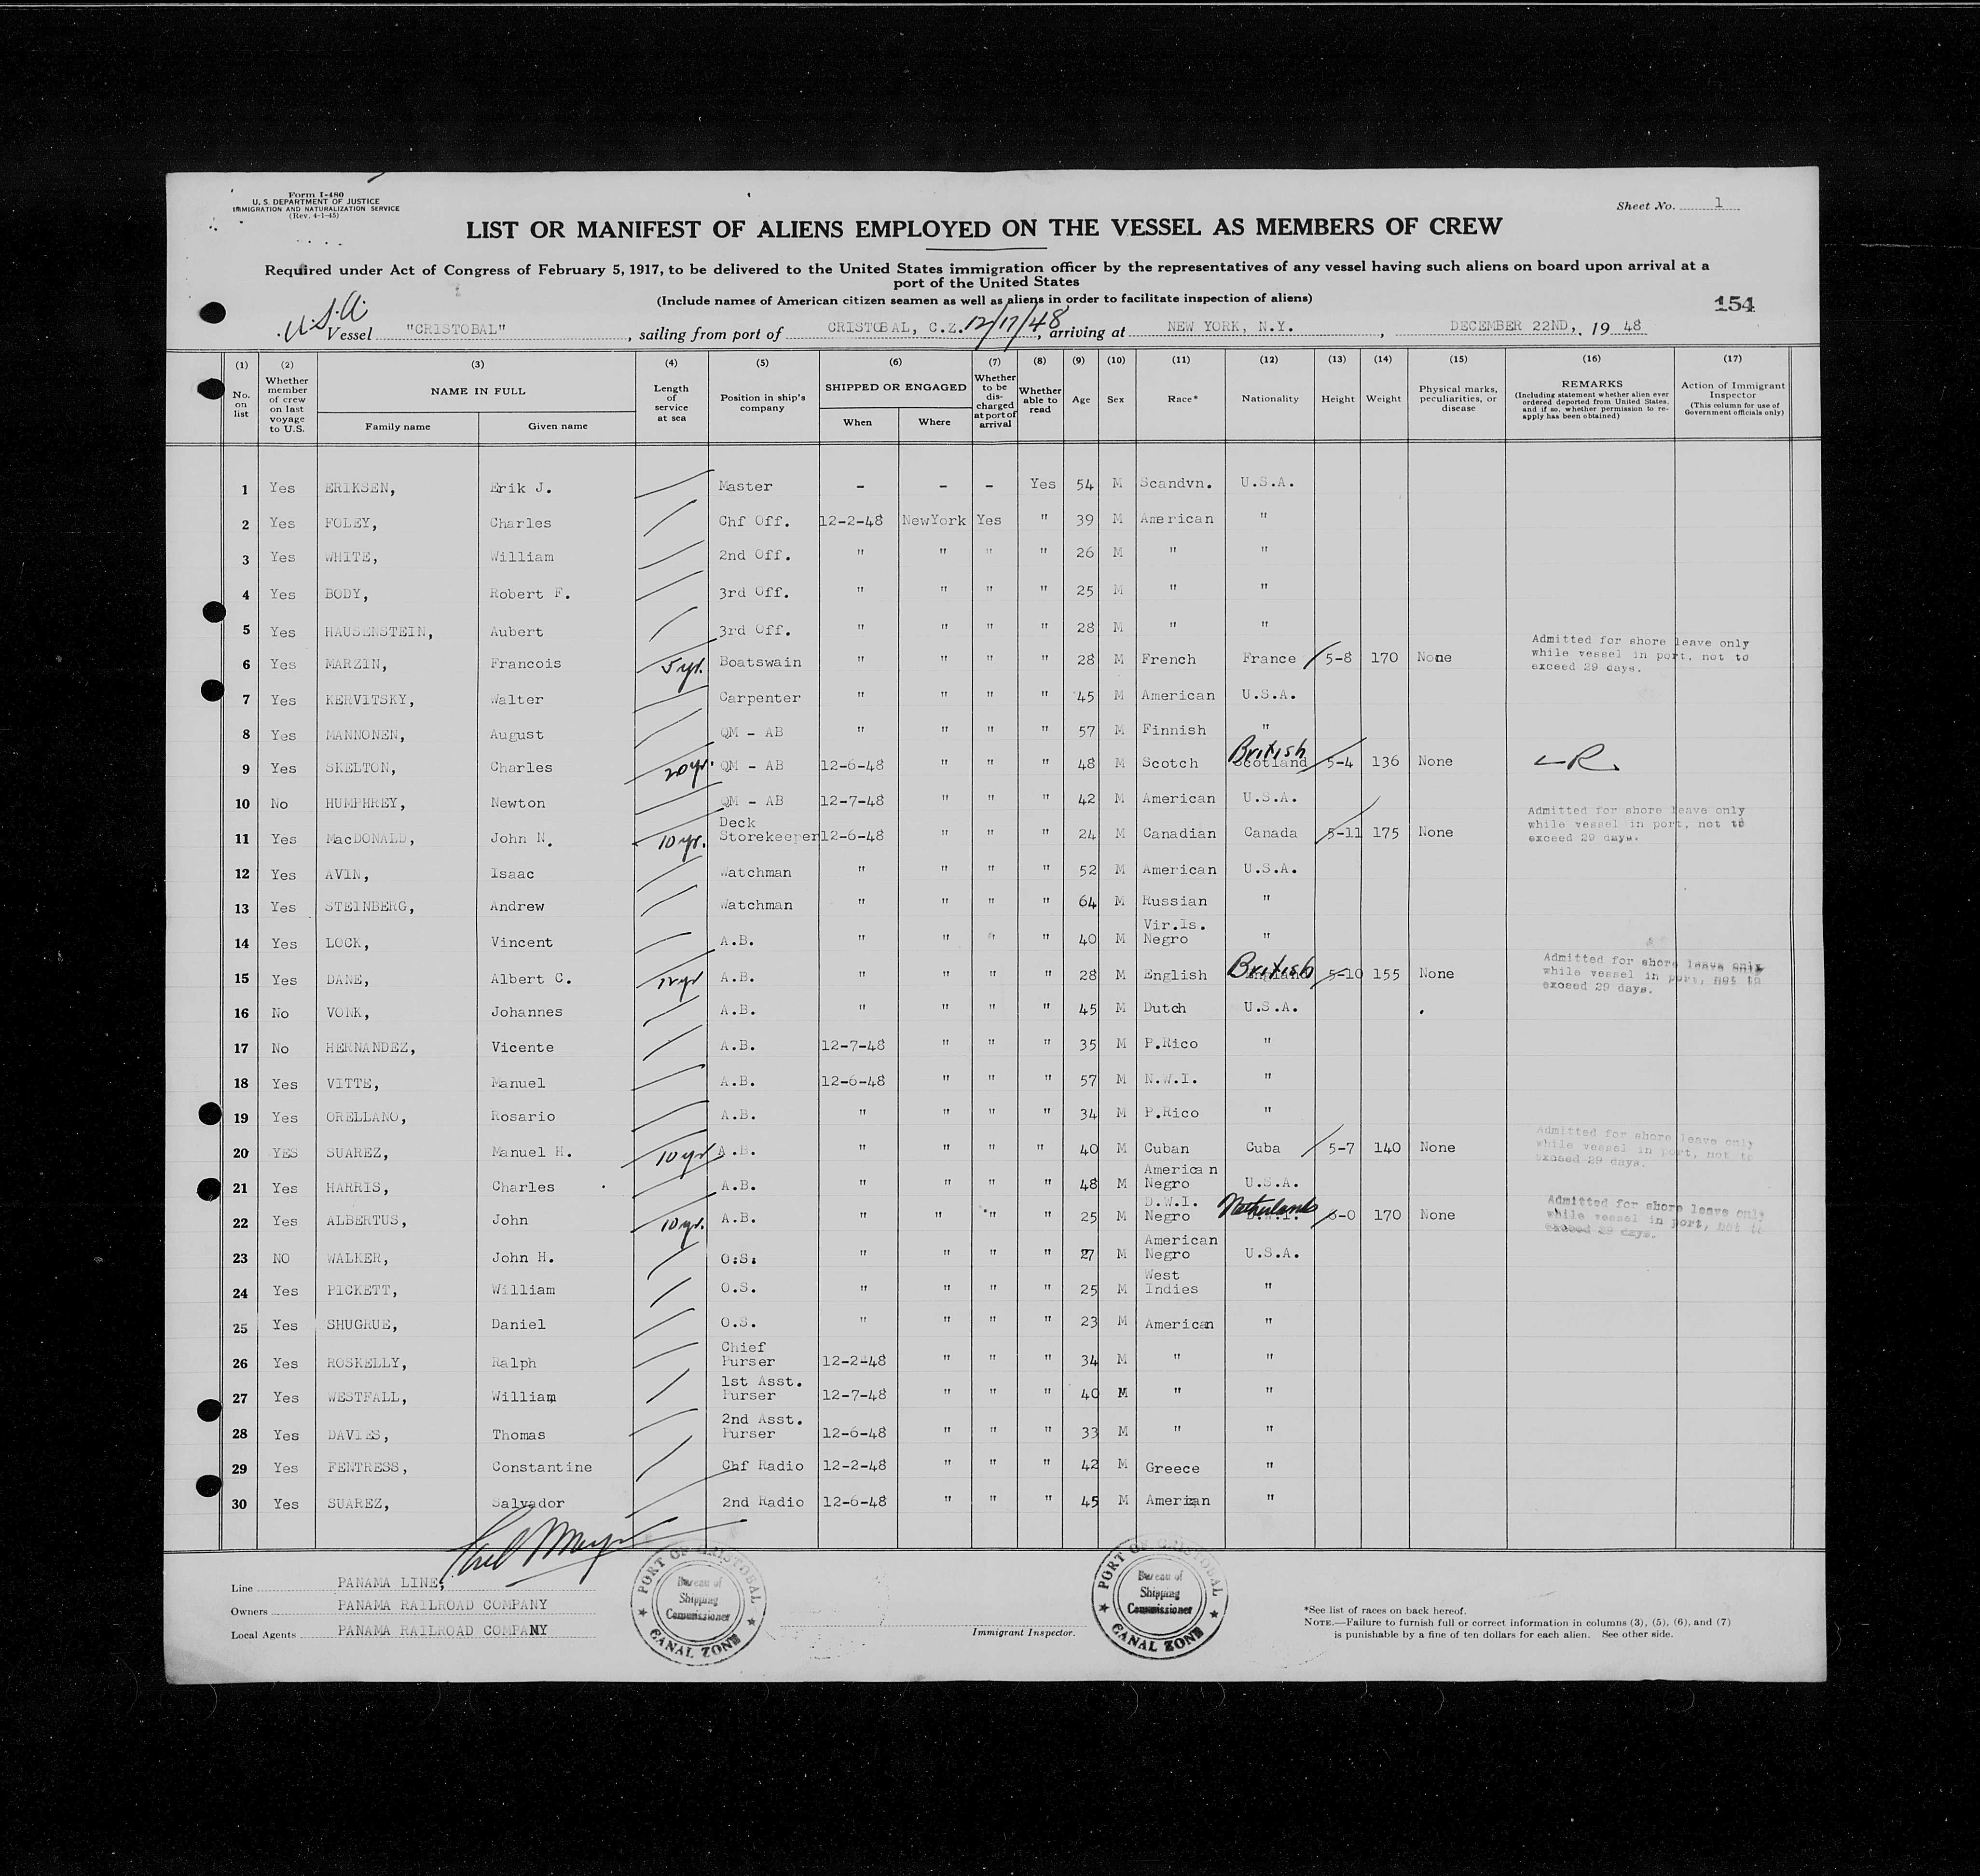 Form I-480
U. S. DEPARTMENT OF JUSTICE
IMMIGRATION AND NATURALIZATION SERVICE
(Rev. 4-1-45)
Sheet No. 1
LIST OR MANIFEST OF ALIENS EMPLOYED ON THE VESSEL AS MEMBERS OF CREW
Required under Act of Congress of February 5, 1917, to be delivered to the United States immigration officer by the representatives of any vessel having such aliens on board upon arrival at a
port of the United States
(Include names of American citizen seamen as well as aliens in order to facilitate inspection of aliens)
154
U.S.A.
Vessel "CRISTOBAL", sailing from port of CRISTOBAL, C.Z. 12/17/48, arriving at NEW YORK, N.Y., DECEMBER 22ND, 19 48
(1) (2) (3) (4) (5) (6) (7) (8) (9) (10) (11) (12) (13) (14) (15) (16) (17)
No. on list | Whether member of crew on last voyage to U.S. | NAME IN FULL | Family name | Given name | Length of service at sea | Position in ship's company | SHIPPED OR ENGAGED | When | Where | Whether to be discharged at port of arrival | Whether able to read | Age | Sex | Race* | Nationality | Height | Weight | Physical marks, peculiarities, or disease | REMARKS (Including statement whether alien ever ordered deported from United States, and if so, whether permission to re-apply has been obtained) | Action of Immigrant Inspector (This column for use of Government officials only)
1 Yes ERIKSEN, Erik J. Master - - - Yes 54 M Scandvn. U.S.A.
2 Yes FOLEY, Charles Chf Off. 12-2-48 NewYork Yes " 39 M American "
3 Yes WHITE, William 2nd Off. " " " " 26 M " "
4 Yes BODY, Robert F. 3rd Off. " " " " 25 M " "
5 Yes HAUSENSTEIN, Aubert 3rd Off. " " " " 28 M " "
6 Yes MARZIN, Francois 5 yr. Boatswain " " " " 28 M French France 5-8 170 None Admitted for shore leave only while vessel in port, not to exceed 29 days.
7 Yes KERVITSKY, Walter Carpenter " " " " 45 M American U.S.A.
8 Yes MANNONEN, August QM - AB " " " " 57 M Finnish "
9 Yes SKELTON, Charles 20 yr. QM - AB 12-6-48 " " " 48 M Scotch British Scotland 5-4 136 None
10 No HUMPHREY, Newton QM - AB 12-7-48 " " " 42 M American U.S.A.
11 Yes MacDONALD, John N. 10 yr. Deck Storekeeper 12-6-48 " " " 24 M Canadian Canada 5-11 175 None Admitted for shore leave only while vessel in port, not to exceed 29 days.
12 Yes AVIN, Isaac Watchman " " " " 52 M American U.S.A.
13 Yes STEINBERG, Andrew Watchman " " " " 64 M Russian "
14 Yes LOCK, Vincent A.B. " " " " 40 M Vir.Is. Negro "
15 Yes DANE, Albert C. 12 yr A.B. " " " " 28 M English British England 5-10 155 None Admitted for shore leave only while vessel in port, not to exceed 29 days.
16 No VONK, Johannes A.B. " " " " 45 M Dutch U.S.A.
17 No HERNANDEZ, Vicente A.B. 12-7-48 " " " 35 M P.Rico "
18 Yes VITTE, Manuel A.B. 12-6-48 " " " 57 M N.W.I. "
19 Yes ORELLANO, Rosario A.B. " " " " 34 M P.Rico "
20 YES SUAREZ, Manuel H. 10 yr A.B. " " " " 40 M Cuban Cuba 5-7 140 None Admitted for shore leave only while vessel in port, not to exceed 29 days.
21 Yes HARRIS, Charles A.B. " " " " 48 M American Negro U.S.A.
22 Yes ALBERTUS, John 10 yr. A.B. " " " " 25 M D.W.I. Negro Netherlands 6-0 170 None Admitted for shore leave only while vessel in port, not to exceed 29 days.
23 NO WALKER, John H. O.S. " " " " 27 M American Negro U.S.A.
24 Yes PICKETT, William O.S. " " " " 25 M West Indies "
25 Yes SHUGRUE, Daniel O.S. " " " " 23 M American "
26 Yes ROSKELLY, Ralph Chief Purser 12-2-48 " " " 34 M " "
27 Yes WESTFALL, William 1st Asst. Purser 12-7-48 " " " 40 M " "
28 Yes DAVIES, Thomas 2nd Asst. Purser 12-6-48 " " " 33 M " "
29 Yes FENTRESS, Constantine Chf Radio 12-2-48 " " " 42 M Greece "
30 Yes SUAREZ, Salvador 2nd Radio 12-6-48 " " " 45 M American "
Line PANAMA LINE,
Owners PANAMA RAILROAD COMPANY
Local Agents PANAMA RAILROAD COMPANY
PORT OF CRISTOBAL
Bureau of
Shipping
Commissioner
CANAL ZONE
Immigrant Inspector.
PORT OF CRISTOBAL
Bureau of
Shipping
Commissioner
CANAL ZONE
*See list of races on back hereof.
NOTE.—Failure to furnish full or correct information in columns (3), (5), (6), and (7)
is punishable by a fine of ten dollars for each alien. See other side.